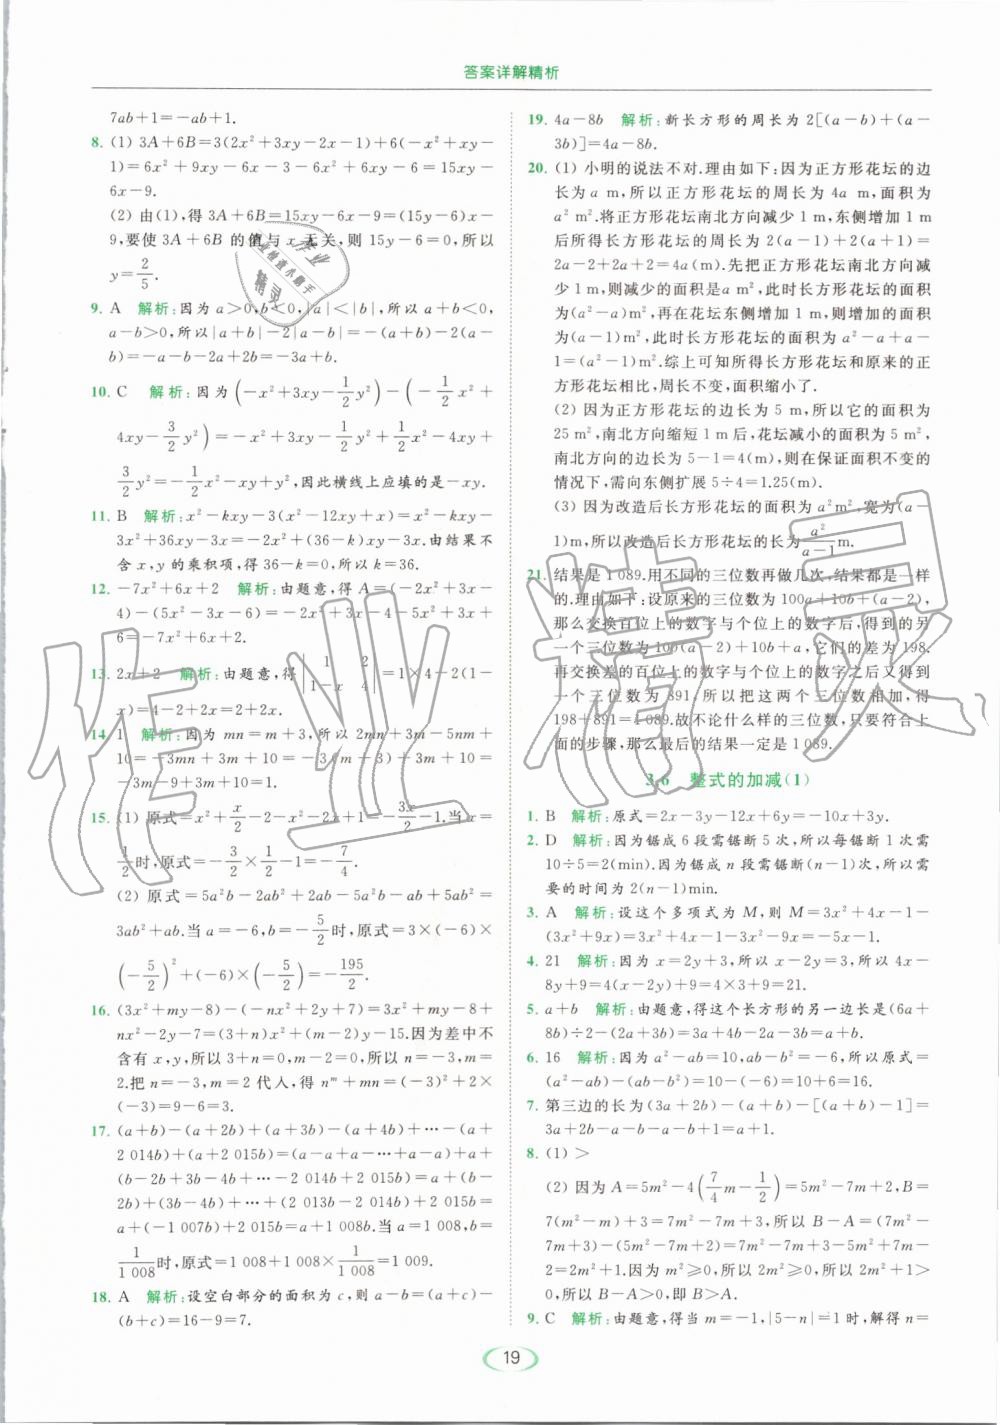 答案详解精析
7ab+1=-ab+1.
8. (1) 3A+6B=3(2x²+3xy-2x-1)+6(-x²+xy-
1)=6x²+9xy-6x-3-6x²+6xy-6=15xy-
6x-9.
(2) 由(1),得 3A+6B=15xy-6x-9=(15y-6)x-
9,要使 3A+6B 的值与 x 无关,则 15y-6=0,所以
y=2/5.
9. A 解析:因为 a>0,b<0,|a|<|b|,所以 a+b<0,
a-b>0,所以|a+b|-2|a-b|=-(a+b)-2(a-
b)=-a-b-2a+2b=-3a+b.
10. C 解析:因为(-x²+3xy-1/2y²)-(-1/2x²+
4xy-3/2y²)=-x²+3xy-1/2y²+1/2x²-4xy+
3/2y²=-1/2x²-xy+y²,因此横线上应填的是-xy.
11. B 解析:x²-kxy-3(x²-12xy+x)=x²-kxy-
3x²+36xy-3x=-2x²+(36-k)xy-3x.由结果不
含 x,y 的乘积项,得 36-k=0,所以 k=36.
12. -7x²+6x+2 解析:由题意,得 A=(-2x²+3x-
4)-(5x²-3x-6)=-2x²+3x-4-5x²+3x+
6=-7x²+6x+2.
13. 2x+2 解析:由题意,得|1 2 1-x 4|=1×4-2(1-
x)=4-2+2x=2+2x.
14. 1 解析:因为 mn=m+3,所以 2mn+3m-5nm+
10=-3mn+3m+10=-3(m+3)+3m+10=
-3m-9+3m+10=1.
15. (1) 原式=x²+x/2-2-x²-2x+1=-3x/2-1.当 x=
1/2时,原式=-3/2×1/2-1=-7/4.
(2) 原式=5a²b-2ab²+2ab-5a²b-ab+5ab²=
3ab²+ab.当 a=-6,b=-5/2时,原式=3×(-6)×
(-5/2)²+(-6)×(-5/2)=-195/2.
16. (3x²+my-8)-(-nx²+2y+7)=3x²+my-8+
nx²-2y-7=(3+n)x²+(m-2)y-15.因为差中不
含有 x,y,所以 3+n=0,m-2=0,所以 n=-3,m=
2.把 n=-3,m=2 代入,得 nᵐ+mn=(-3)²+2×
(-3)=9-6=3.
17. (a+b)-(a+2b)+(a+3b)-(a+4b)+…-(a+
2 014b)+(a+2 015b)=(a-a+a-…+a-a)+a+
(b-2b+3b-4b+…-2 014b+2 015b)=a+(b-
2b)+(3b-4b)+…+(2 013b-2 014b)+2 015b=
a+(-1 007b)+2 015b=a+1 008b.当 a=1 008,b=
1/1 008时,原式=1 008+1 008×1/1 008=1 009.
18. A 解析:设空白部分的面积为 c,则 a-b=(a+c)-
(b+c)=16-9=7.
19. 4a-8b 解析:新长方形的周长为 2[(a-b)+(a-
3b)]=4a-8b.
20. (1) 小明的说法不对.理由如下:因为正方形花坛的边
长为 a m,所以正方形花坛的周长为 4a m,面积为
a² m².将正方形花坛南北方向减少 1 m,东侧增加 1 m
后所得长方形花坛的周长为 2(a-1)+2(a+1)=
2a-2+2a+2=4a(m).先把正方形花坛南北方向减
少 1 m,则减少的面积为 a m²,此时长方形花坛的面积
为(a²-a)m²,再在花坛东侧增加 1 m,则增加的面积
为(a-1)m²,此时长方形花坛的面积为 a²-a+a-
1=(a²-1)m².综上可知所得长方形花坛和原来的正
方形花坛相比,周长不变,面积缩小了.
(2) 因为正方形花坛的边长为 5 m,所以它的面积为
25 m²,南北方向缩短 1 m后,花坛减小的面积为 5 m²,
南北方向的长为 5-1=4(m),则在保证面积不变的
情况下,需向东侧扩展 5÷4=1.25(m).
(3) 因为改造后长方形花坛的面积为 a²m²,宽为(a-
1)m,所以改造后长方形花坛的长为a²/a-1 m.
21. 结果是 1 089.用不同的三位数再做几次,结果都是一样
的.理由如下:设原来的三位数为 100a+10b+(a-2),
那么交换百位上的数字与个位上的数字后,得到的另
一个三位数为 100(a-2)+10b+a,它们的差为 198.
再交换差的百位上的数字与个位上的数字之后又得到
一个三位数为 891,所以把这两个三位数相加,得
198+891=1 089.故不论什么样的三位数,只要符合上
面的步骤,那么最后的结果一定是 1 089.
3.6 整式的加减(1)
1. B 解析:原式=2x-3y-12x+6y=-10x+3y.
2. D 解析:因为锯成 6 段需锯断 5 次,所以每锯断 1 次需
10÷5=2(min).因为锯成 n 段需锯断(n-1)次,所以需
要的时间为 2(n-1)min.
3. A 解析:设这个多项式为 M,则 M=3x²+4x-1-
(3x²+9x)=3x²+4x-1-3x²-9x=-5x-1.
4. 21 解析:因为 x=2y+3,所以 x-2y=3,所以 4x-
8y+9=4(x-2y)+9=4×3+9=21.
5. a+b 解析:由题意,得这个长方形的另一边长是(6a+
8b)÷2-(2a+3b)=3a+4b-2a-3b=a+b.
6. 16 解析:因为 a²-ab=10,ab-b²=-6,所以原式=
(a²-ab)-(ab-b²)=10-(-6)=10+6=16.
7. 第三边的长为(3a+2b)-(a+b)-[(a+b)-1]=
3a+2b-a-b-a-b+1=a+1.
8. (1) >
(2) 因为 A=5m²-4(7/4m-1/2)=5m²-7m+2,B=
7(m²-m)+3=7m²-7m+3,所以 B-A=(7m²-
7m+3)-(5m²-7m+2)=7m²-7m+3-5m²+7m-
2=2m²+1.因为 m²≥0,所以 2m²≥0,所以 2m²+1>
0,所以 B-A>0,即 B>A.
9. C 解析:由题意,得当 m=-1,|5-n|=1时,解得 n=
19
作业精灵